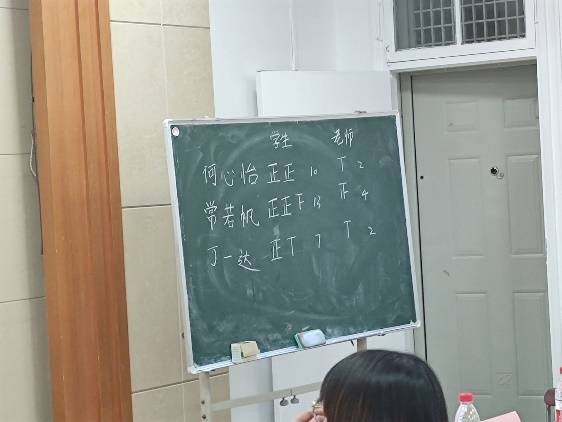 学生 老师
何心怡 正正 10 丅 2
常若帆 正正下 13 𠄟 4
丁一达 正丅 7 丅 2